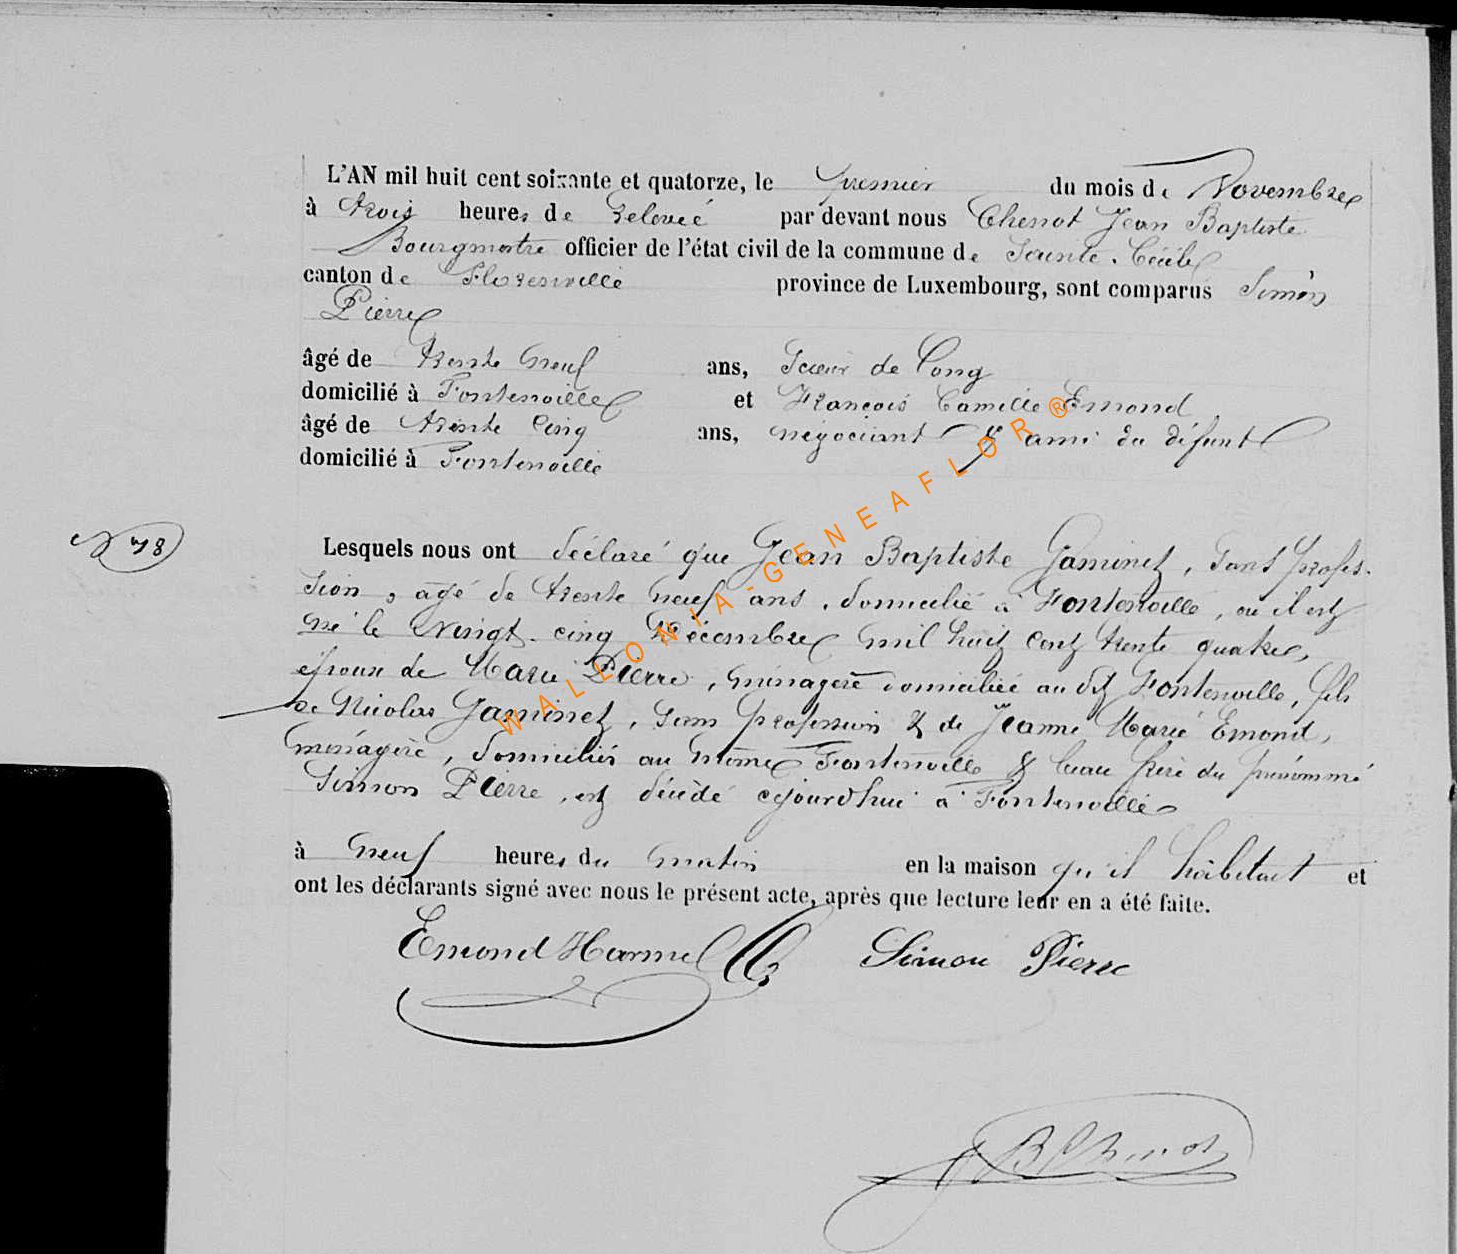 L'AN mil huit cent soixante et quatorze, le premier du mois de Novembre
à trois heures de relevée par devant nous Chenot Jean Baptiste
Bourgmestre officier de l'état civil de la commune de Sainte Cécile
canton de Florenville province de Luxembourg, sont comparus Simon
Pierre
âgé de trente neuf ans, Scieur de Long
domicilié à Fontenoille et François Camille Emond
âgé de trente cinq ans, négociant & ami du défunt
domicilié à Fontenoille
N 48
Lesquels nous ont déclaré que Jean Baptiste Gaminet, sans profes-
sion, agé de trente neuf ans, domicilié à Fontenoille, où il est
né le vingt-cinq Décembre mil huit cent trente quatre,
époux de Marie Pierre, ménagère domiciliée au dit Fontenoille, fils
de Nicolas Gaminet, sans profession & de Jeanne Marie Emond,
ménagère, domiciliés au même Fontenoille & beau frère du prénommé
Simon Pierre, est décédé cejourd'hui à Fontenoille
à neuf heures du matin en la maison qu'il habitait et
ont les déclarants signé avec nous le présent acte, après que lecture leur en a été faite.
Emond Harmel Simon Pierre
JB Chenot
WALLONIA-GENEAFLOR®